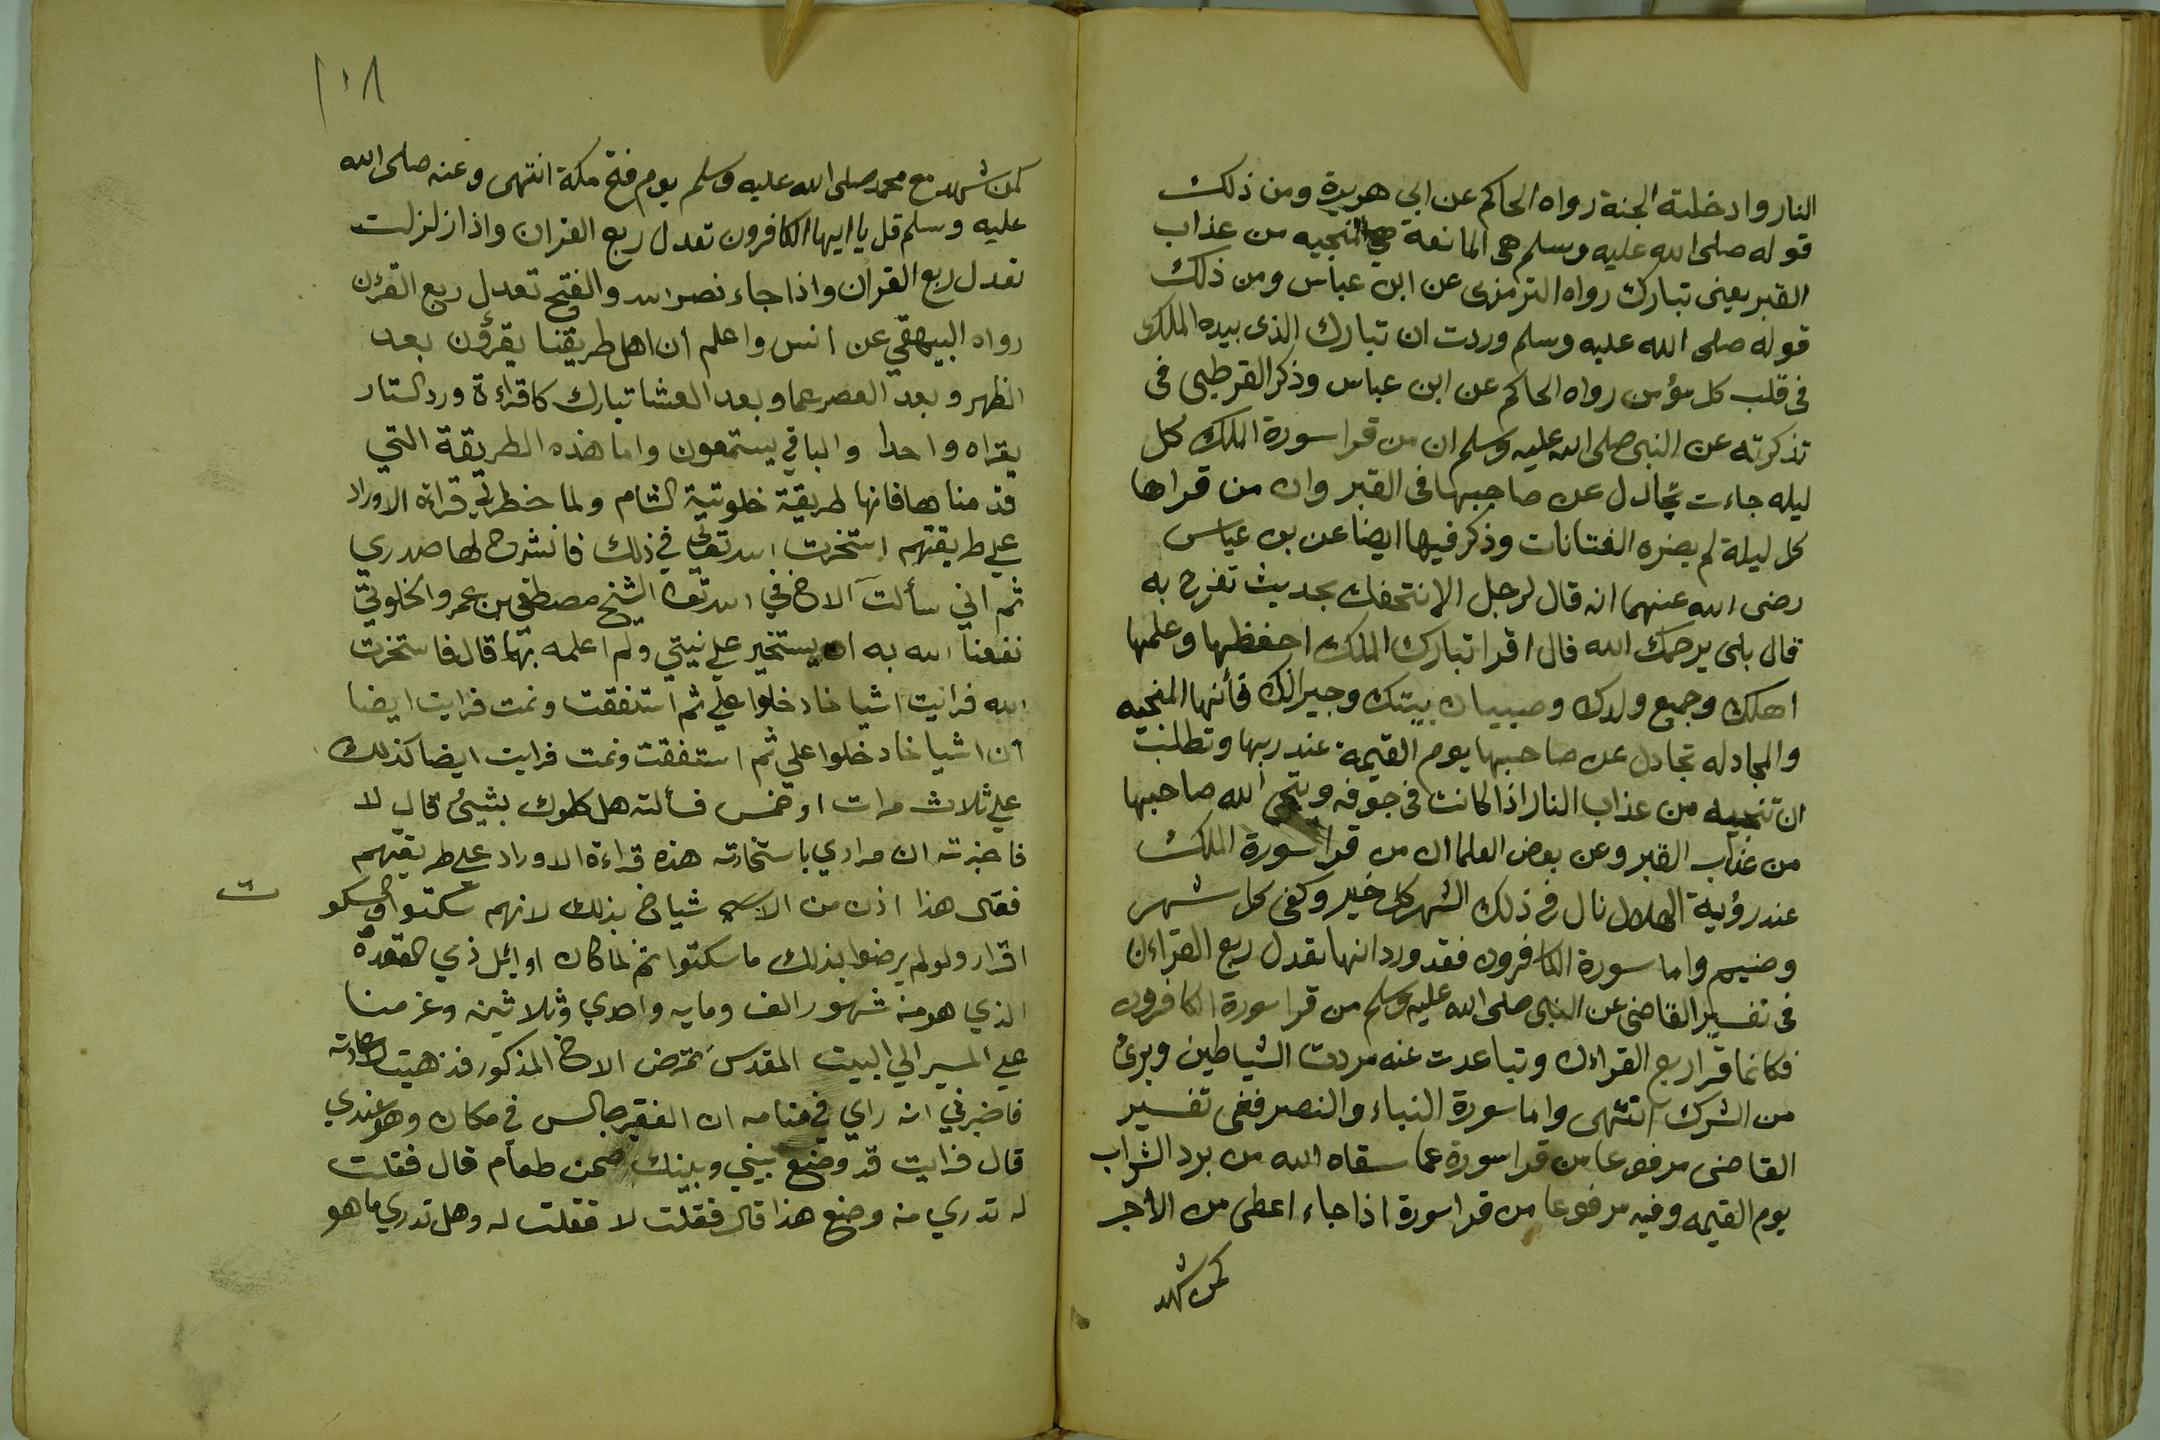 النار وادخلته الجنة رواه الحاكم عن ابى هريرة ومن ذلك
قوله صلى الله عليه وسلم هى المانعة هي المنجيه من عذاب
القبر يعنى تبارك رواه الترمزى عن ابن عباس ومن ذلك
قوله صلى الله عليه وسلم وردت ان تبارك الذى بيده الملك
فى قلب كل مؤمن رواه الحاكم عن ابن عباس وذكر القرطبى فى
تذكرته عن النبى صلى الله عليه وسلم ان من قرا سورة الملك كل
ليله جاءت تجادل عن صاحبها فى القبر وان من قراها
كل ليلة لم يضره الفتانات وذكر فيها ايضا عن بن عباس
رضى الله عنهما انه قال لرجل الا نتحفك بحديث تفرح به
قال بلى يرحمك الله قال اقرا تبارك الملك احفظها وعلمها
اهلك وجميع ولدك وصبيان بيتك وجيرانك فأنها المنجيه
والمجادله تجادل عن صاحبها يوم القيمة عند ربها وتطلب
ان تنجيه من عذاب النار اذا كانت فى جوفه وينجى الله صاحبها
من عذاب القبر وعن بعض العلما ان من قرا سورة الملك
عند رؤية الهلال نال فى ذلك الشهر كل خير وكفى كل شهر
وضيم واما سورة الكافرون فقد ورد انها تعدل ربع القراءن
فى تفسير القاضى عن النبى صلى الله عليه وسلم من قرا سورة الكافرون
فكانما قرا ربع القراءن وتباعدت عنه مردت الشياطين وبرئ
من الشرك انتهى واما سورة النباء والنصر ففى تفسير
القاضى مرفوعا من قرا سورة عما سقاه الله من برد الشراب
يوم القيمه وفيه مرفوعا من قرا سورة اذا جاء اعطى من الأجر
كمن شهد
١٠٨
كمن شهد مع محمد صلى الله عليه وسلم يوم فتح مكة انتهى وعنه صلى الله
عليه وسلم قل يا ايها الكافرون تعدل ربع القران واذا زلزلت
تعدل ربع القران واذا جاء نصر الله والفتح تعدل ربع القرٔن
رواه البيهقي عن انس واعلم ان اهل طريقنا يقرؤن بعد
الظهر وبعد العصر عما وبعد العشا تبارك كاقراءة ورد الستار
يقراه واحدا والباقي يستمعون واما هذه الطريقة التي
قدمناها فانها طريقة خلوتية الشام ولما خطر لي قراءة الاوراد
على طريقتهم استخرت الله تعالى في ذلك فانشرح لها صدري
ثم اني سألت الاخ في الله تعالى الشيخ مصطفى بن عمرو الخلوتي
نفعنا الله به ان يستخير على نيتي ولم اعلمه بها قال فاستخرت
الله فرايت اشياخا دخلوا علي ثم استفقت ونمت فرايت ايضا
ان اشياخا دخلوا علي ثم استفقت ونمت فرايت ايضا كذلك
على ثلاث مرات او خمس فسألته هل كلموك بشيئ قال لا
فاخبرته ان مرادي باستخارته هذه قراءة الاوراد على طريقتهم
فقال هذا اذن من الاشياخ بذلك لانهم سكتوا والسكو
ت
اقرار ولو لم يرضوا بذلك ما سكتوا ثم لما كان اوائل ذي القعدة
الذي هو من شهور الف ومايه واحدي وثلاثين وعزمنا
علي المسير الي البيت المقدس تمرض الاخ المذكور فذهبت لعيادته
فاخبرني انه راي في منامه ان الفقير جالس في مكان وهو عندي
قال فرايت قد وضع بيني وبينك صحن طعام قال فقلت
له تدري من وضع هذا قال فقلت لا فقلت له وهل تدري ما هو